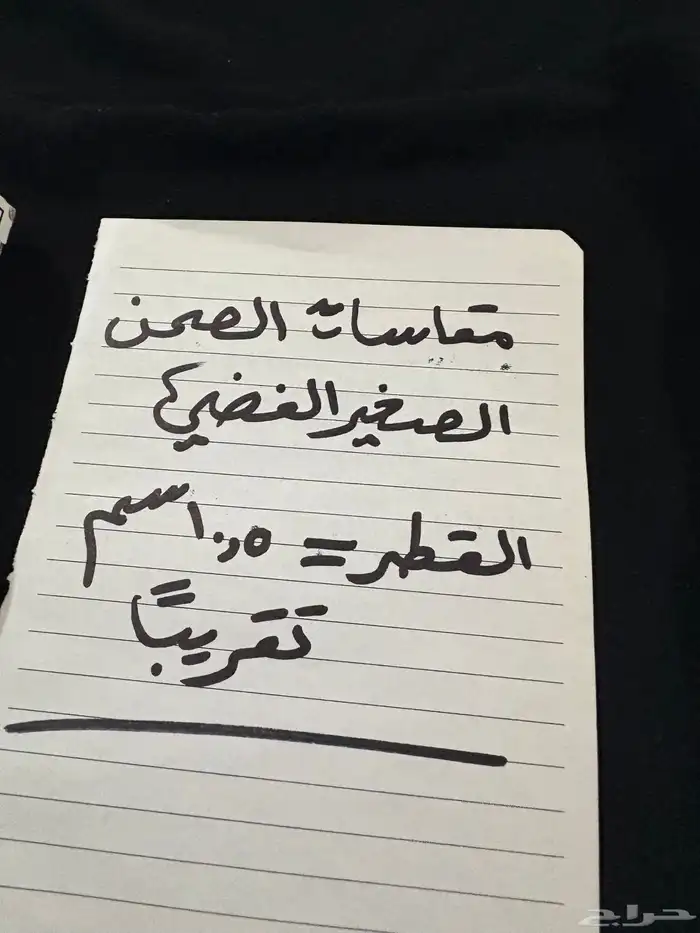 مقاسات الصحن
الصغير الفضي
القطر = ١٠,٥ سم
تقريبًا
حراج